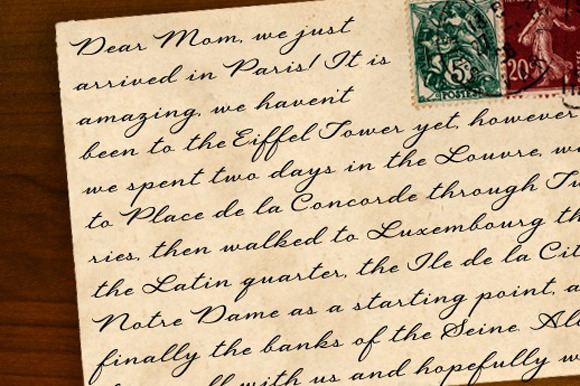 Dear Mom, we just
arrived in Paris! It is
amazing, we haven't
been to the Eiffel Tower yet, however
we spent two days in the Louvre,
to Place de la Concorde through Tu
ries, then walked to Luxembourg th
the Latin quarter, the Ile de la Cit
Notre Dame as a starting point, a
finally the banks of the Seine. Al
with us and hopefully
5c
POSTES
20